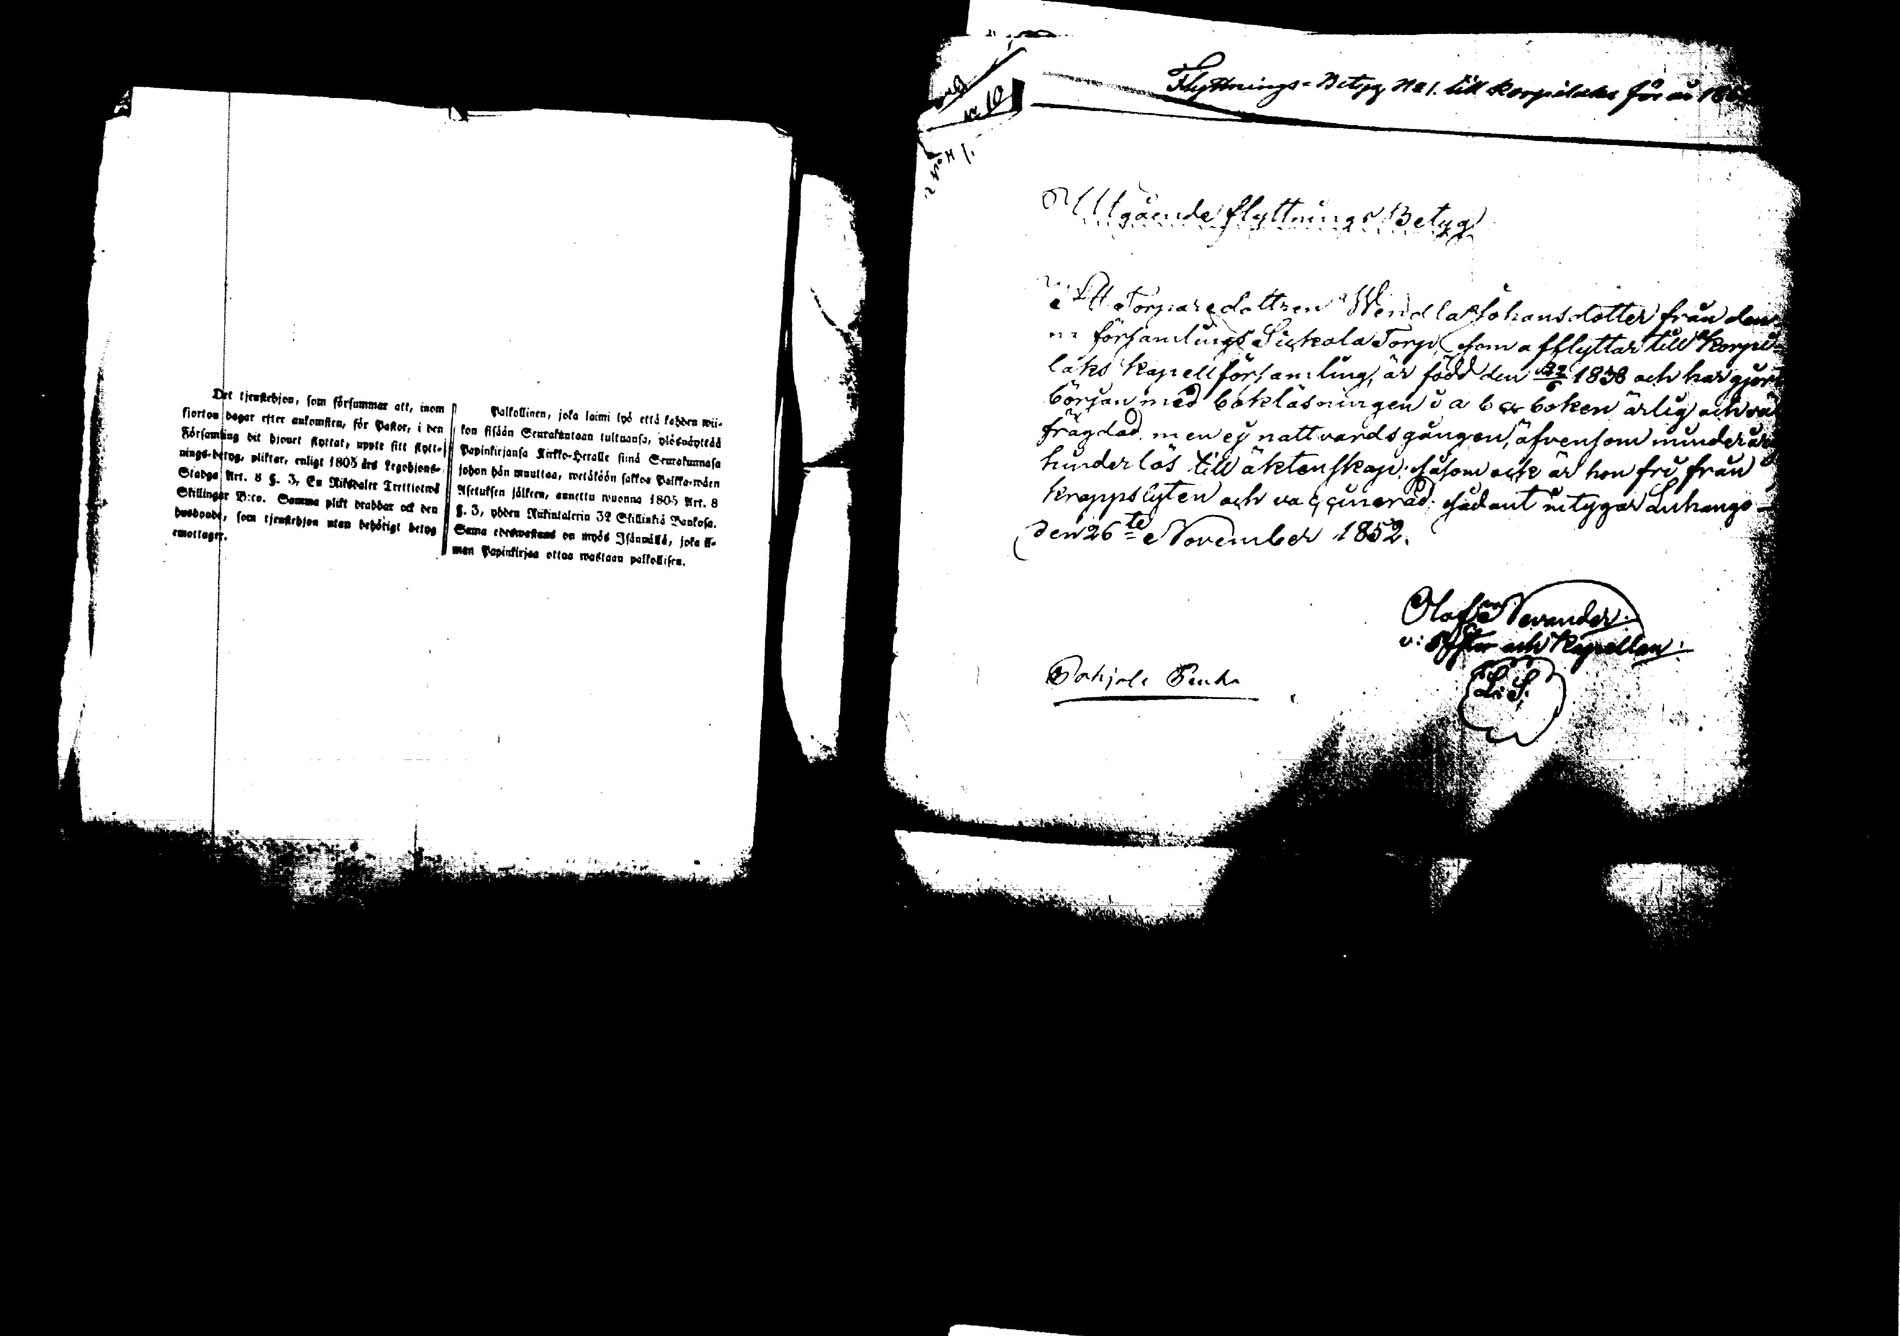 Det tjenstehjon, som försummar att, inom
fjorton dagar efter ankomsten, för Pastor, i den
Församling dit hjonet flyttat, uppte sitt flytt-
nings-betyg, pliktar, enligt 1805 års Legohjons-
Stadga Art. 8 §. 3, En Riksdaler Trettiotwå
Skillingar B:co. Samma plikt drabbar ock den
husbonde, som tjenstehjon utan behörigt betyg
emottager.
Palkollinen, joka laimi lyö että kahden wii-
kon sisään Seurakuntaan tultuansa, ylösnäyttää
Papinkirjansa Kirkko-Herralle siinä Seurakunnasa
johon hän muuttaa, wetäköön sakkoa Palkka-wäen
Asetuksen jälkeen, annettu wuonna 1805 Art. 8
§. 3, yhden Riikintalerin 32 Skillinkiä Bankosa.
Sama edeswastaus on myös Isännällä, joka il-
man Papinkirjaa ottaa wastaan palkollisen.
Flyttnings-Betyg No 1. till Korpilaks för år
No 1.
Utgående flyttnings Betyg
Torparedottren Wendla Johansdotter från den
församlings Torp, som afflyttar till Korpi-
laks kapellförsamling, är född den 1838 och har gjort
början med bokläsningen i a b c boken, ärlig och
frägdad. men ej nattvardsgången, äfvensom
hinderlös till äktenskap. såsom ock är hon fri från
kroppslyten och vaccinerad; sådant intygar Luhango
den 26te November 1852.
Olof Nevander.
v: Pastor och Kapellan.
L. S.